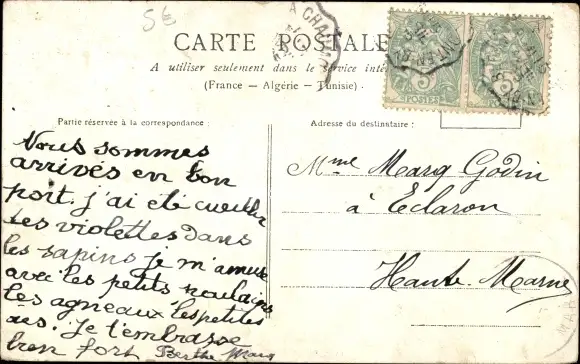 5€
CARTE POSTALE
A utiliser seulement dans le service
(France — Algérie — Tunisie).
Partie réservée à la correspondance :
Adresse du destinataire :
A CHAUM
POSTES
Nous sommes
arrivés en bon
port. j'ai été cueillir
des violettes dans
les sapins je m'amuse
avec les petits poulains
les agneaux les petites
oies. Je t'embrasse
bien fort Berthe Marq
Mme Marq Godin
à Eclaron
Haute-Marne